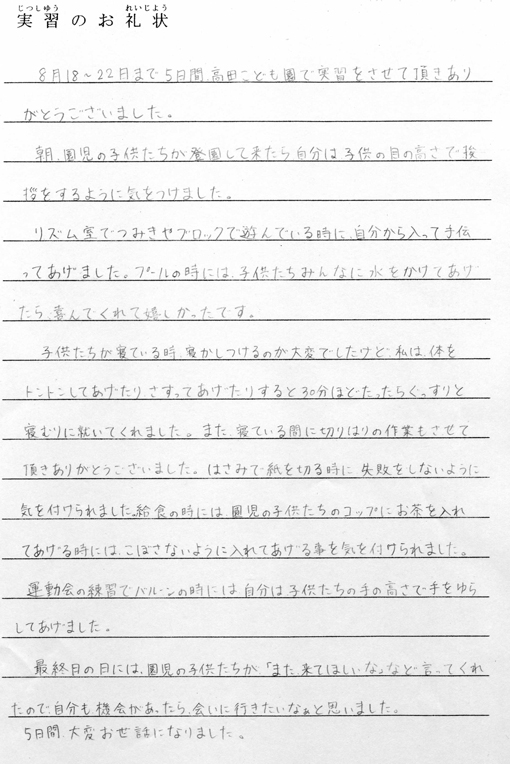 じっしゅう れいじょう
実習のお礼状
8月18～22日まで5日間、高田こども園で実習をさせて頂きあり
がとうございました。
朝、園児の子供たちが登園して来たら自分は子供の目の高さで挨
拶をするように気をつけました。
リズム室でつみきやブロックで遊んでいる時に、自分から入って手伝
ってあげました。プールの時には、子供たちみんなに水をかけてあげ
たら、喜んでくれて嬉しかったです。
子供たちが寝ている時、寝かしつけるのが大変でしたけど、私は、体を
トントンしてあげたり、さすってあげたりすると30分ほどたったらぐっすりと
寝むりに就いてくれました。また、寝ている間に切りはりの作業もさせて
頂きありがとうございました。はさみで紙を切る時に、失敗をしないように
気を付けられました。給食の時には、園児の子供たちのコップにお茶を入れ
てあげる時には、こぼさないように入れてあげる事を気を付けられました。
運動会の練習でバルーンの時には、自分は子供たちの手の高さで手をゆら
してあげました。
最終日の日には、園児の子供たちが、「また、来てほしいな」など言ってくれ
たので自分も、機会があったら、会いに行きたいなぁと思いました。
5日間、大変お世話になりました。